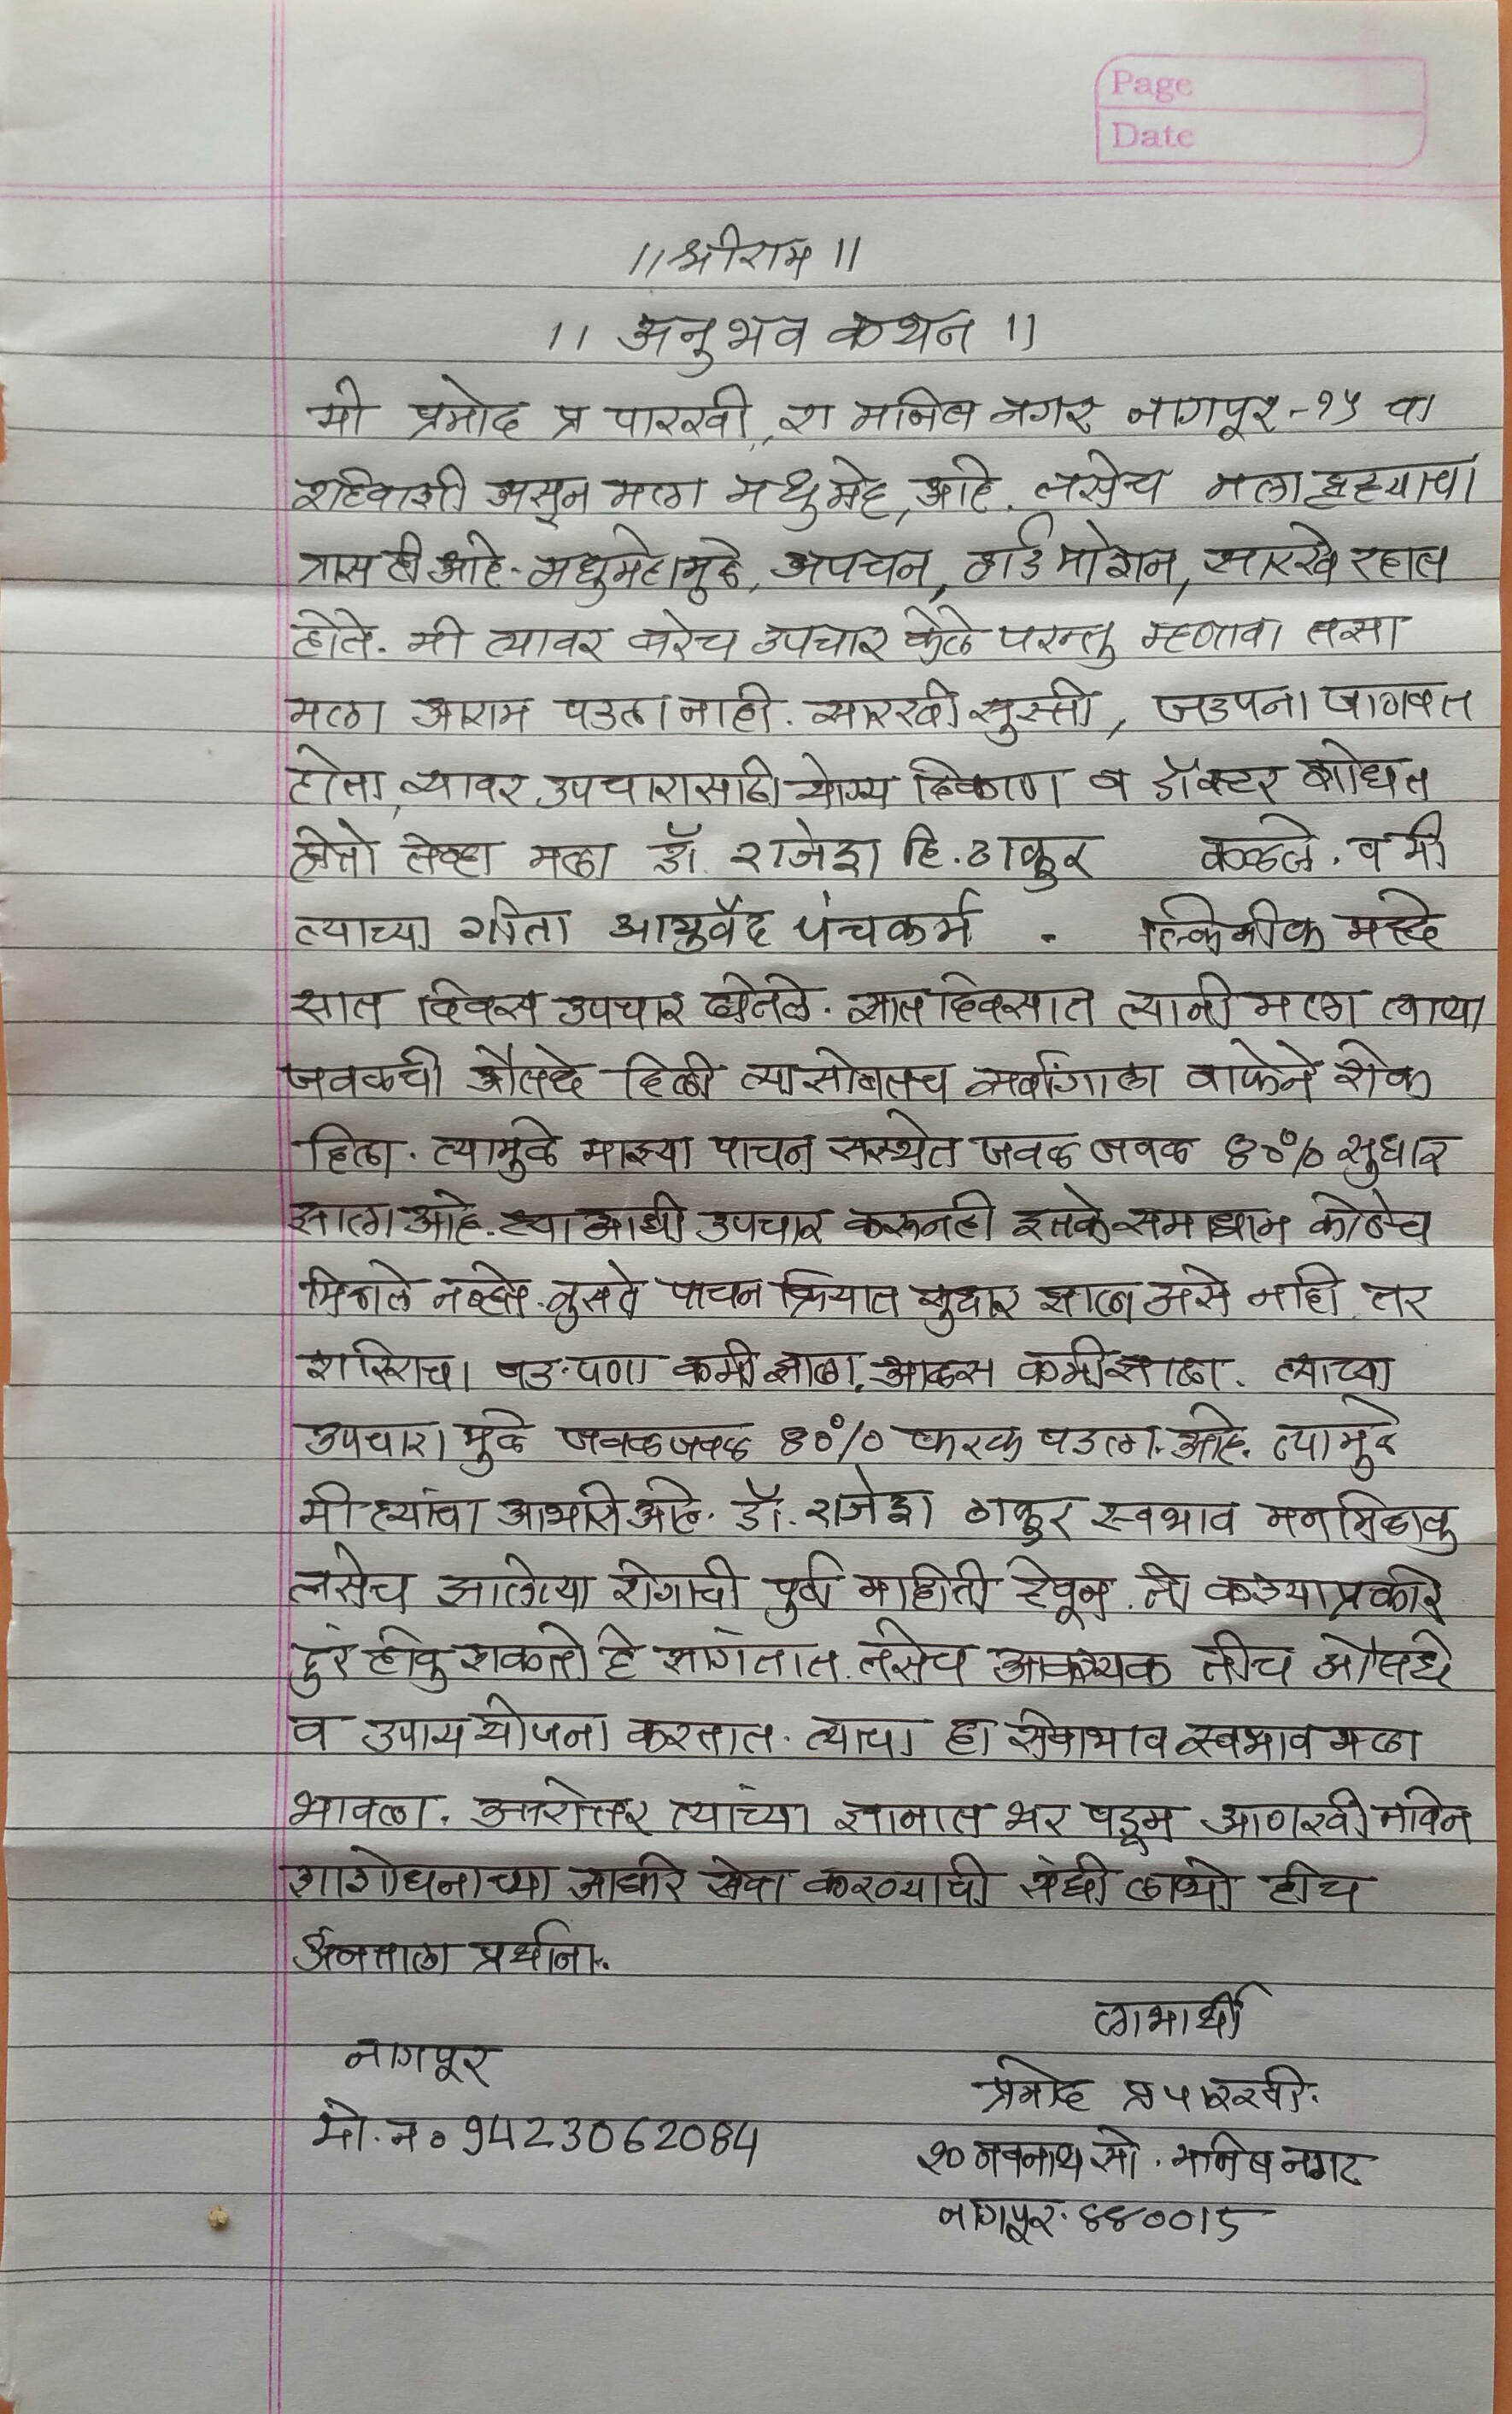 Page
Date
।। श्रीराम ।।
।। अनुभव कथन ।।
मी प्रमोद प्र पारखी, रा मनिष नगर नागपूर-१५ चा
रहिवाशी असून मला मधुमेह, आहे. तसेच मला हृदयाचा
त्रास ही आहे. मधुमेहामुळे, अपचन, हार्ड मोशन, सारखे रहात
होते. मी त्यावर बरेच उपचार केले परन्तु म्हणावा तसा
मला आराम पडला नाही. सारखी सुस्ती, जडपना जाणवत
होता, त्यावर उपचारासाठी योग्य ठिकाण व डॉक्टर शोधित
होतो तेव्हा मला डॉ. राजेश हि. ठाकुर कळले. व मी
त्याच्या गीता आयुर्वेद पंचकर्म . क्लिनीक मध्दे
सात दिवस उपचार घेतले. सात दिवसात त्यानी मला त्याच्या
जवळची औषधे दिली त्या सोबतच सर्वांगाला वाफेने शेक
दिला. त्यामुळे माझ्या पाचन सस्थेत जवळ जवळ ४०% सुधार
झाला आहे. ह्या आधी उपचार करूनही इतके समाधान कोठेच
मिळाले नव्हते. नुसते पाचन क्रियात सुधार झाला असे नाही तर
शरिराचा जड-पणा कमी झाला. आळस कमी झाला. त्याच्या
उपचारामुळे जवळजवळ ४०% फरक पडला. आहे. त्यामुळे
मी त्यांचा आभारी आहे. डॉ. राजेश ठाकुर स्वभाव मनमिळावु
तसेच झालेल्या रोगाची पुर्व माहिती देवून. तो कश्या प्रकारे
दुर होवु शकतो हे सागंतात. तसेच आवश्यक तीच औषधे
व उपाय योजना करतात. त्याचा हा सेवाभाव स्वभाव मला
भावला. उत्तरोत्तर त्यांच्या ज्ञानात भर पडून आणखी नविन
शंशोधनाच्या आधारे सेवा करण्याची संधी लाभो हीच
अनंताला प्रर्थाना.
लाभार्थी
नागपूर
प्रमोद प्र पारखी.
मो. न० 9423062084
२० नवनाथ सो. मनिष नगर
नागपूर. ४४००15